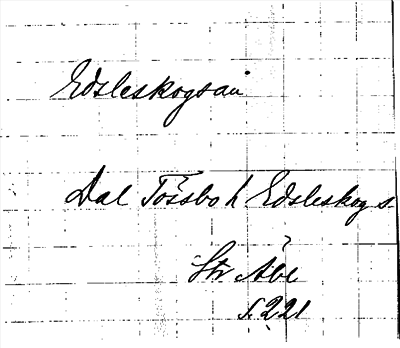 Edsleskogsån
Dal Tössbo h Edsleskog s.
Str Åbe
s. 221